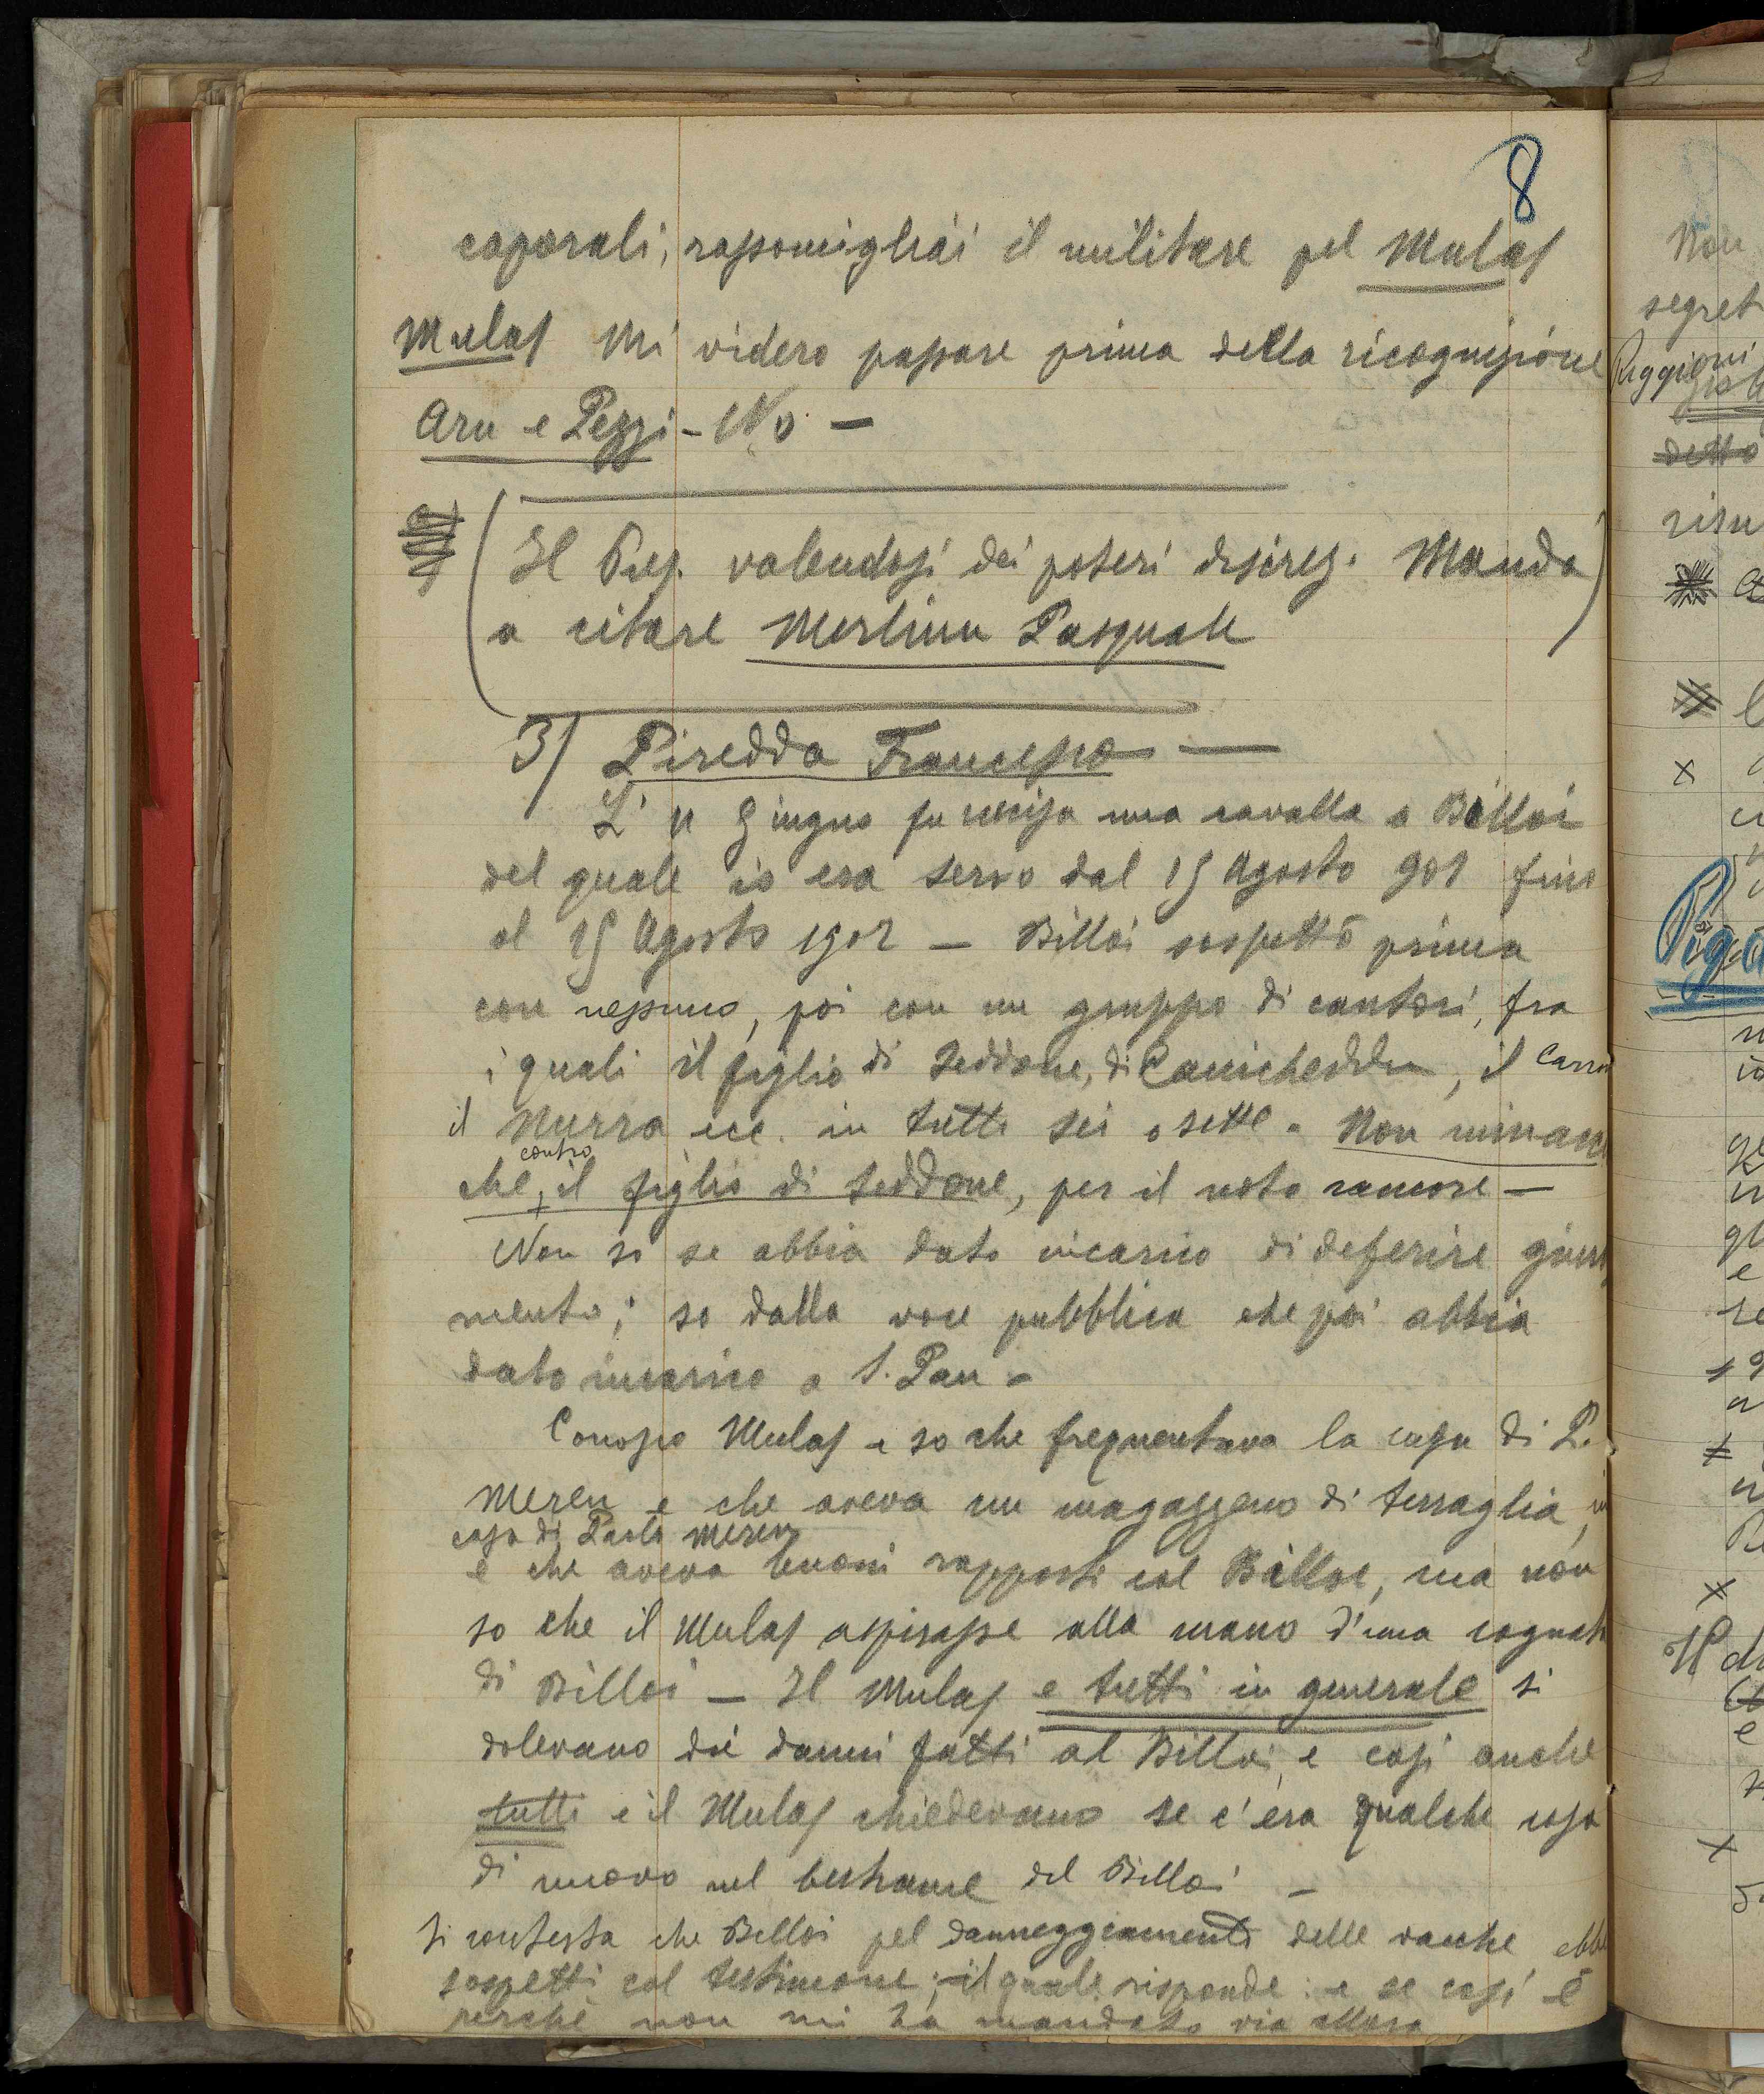 8
caporali, rassomigliai il militare pel Mulas
Mulas Mi videro passare prima della ricognizione
Aru e Pezzi - No -
(Il Pres. valendosi dei poteri discrez. Manda
a citare Merlinu Pasquale)
3) Piredda Francesco -
L' 11 Giugno fu uccisa una cavalla a Billoi
del quale io era servo dal 15 Agosto 901 fino
al 15 Agosto 1902 - Billoi sospettò prima
con nessuno, poi con un gruppo di cantori, fra
i quali il figlio di Seddone, di Canicheddu, il
il Nurra ecc. in tutti sei o sette. Non
contro
che, il figlio di Seddone, per il noto rancore -
Non so se abbia dato incarico di deferire giura
mento; so dalla voce pubblica che poi abbia
dato incarico a S. Pau -
Conosco Mulas e so che frequentava la casa di P.
Mereu e che aveva un magazzeno di terraglia, in
casa di Paolo Mereu
e che aveva buoni rapporti col Billoi, ma non
so che il Mulas aspirasse alla mano d'una cognata
di Billoi - Il Mulas e tutti in generale si
dolevano dei danni fatti al Billoi, e così anche
tutti e il Mulas chiedevano se c'era qualche cosa
di nuovo nel bestiame del Billoi -
Si contesta che Billoi pel danneggiamento delle vacche ebbe
sospetti col testimone; il quale risponde: e se così è
perchè non mi ha mandato via allora
Non
segret
Puggioni
detto
risu
Piga